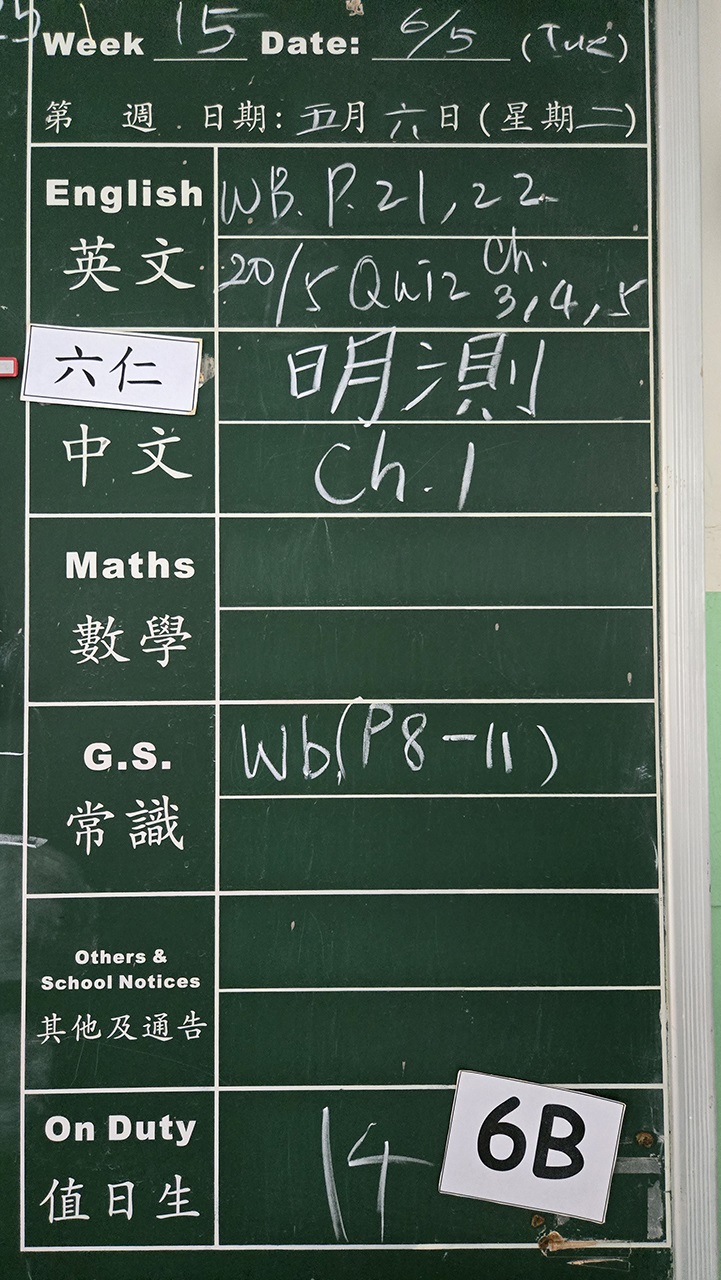 Week 15 Date: 6/5 (Tue)
第 週 日期: 五月六日(星期二)
English
WB. P. 21, 22
英文
20/5 Quiz Ch. 3, 4, 5
六仁
明測
中文
Ch. 1
Maths
數學
G.S.
Wb. (P8-11)
常識
Others &
School Notices
其他及通告
On Duty
14
值日生
6B